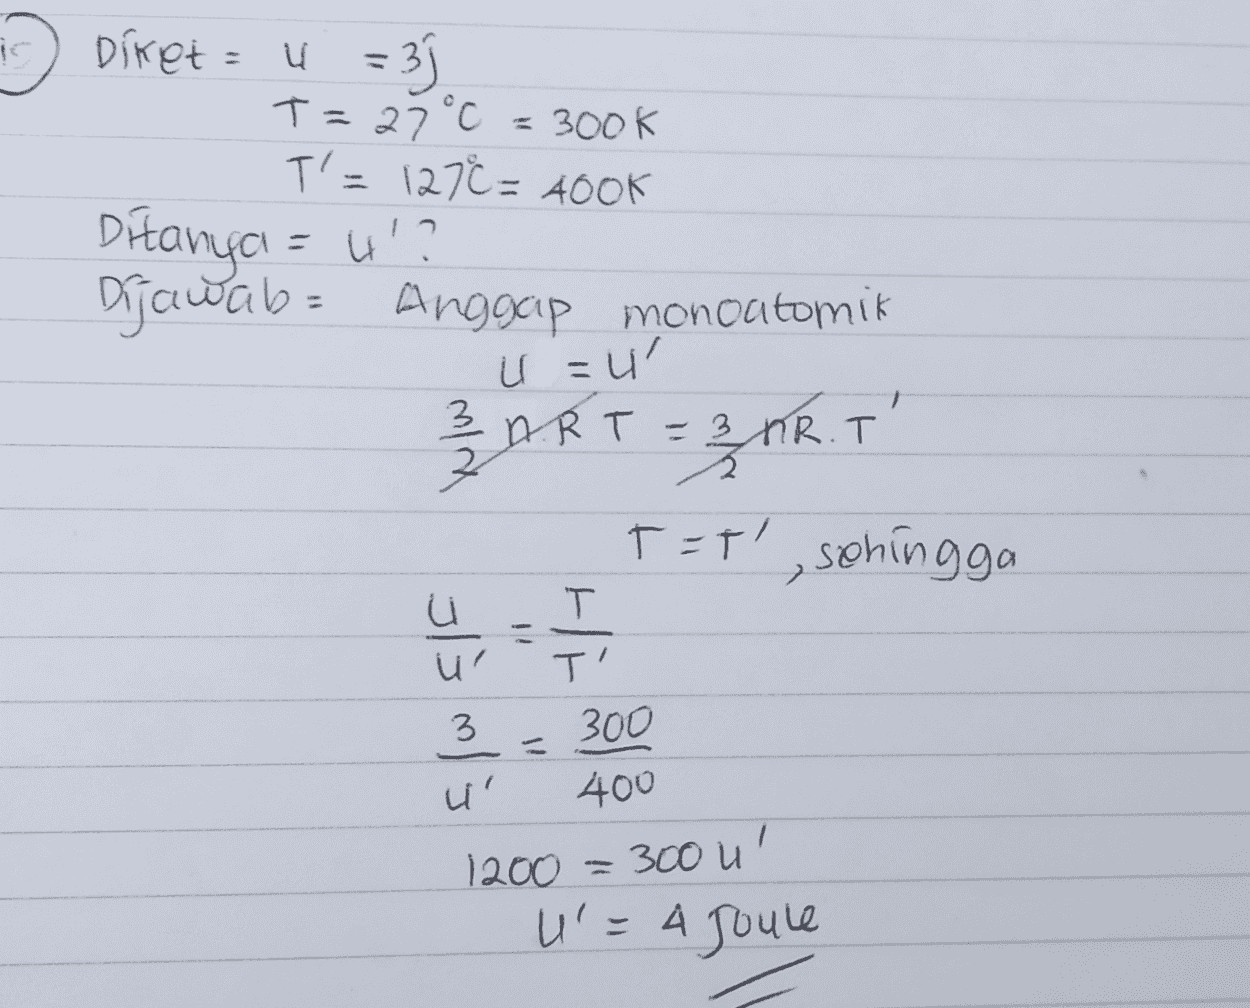 Diket = u = 3j
T = 27°C = 300K
T' = 127°C = 400K
Ditanya = u'?
Dijawab = Anggap monoatomik
u = u'
3/2 n.R T = 3/2 nR.T'
T = T', sehingga
u/u' = T/T'
3/u' = 300/400
1200 = 300 u'
u' = 4 Joule